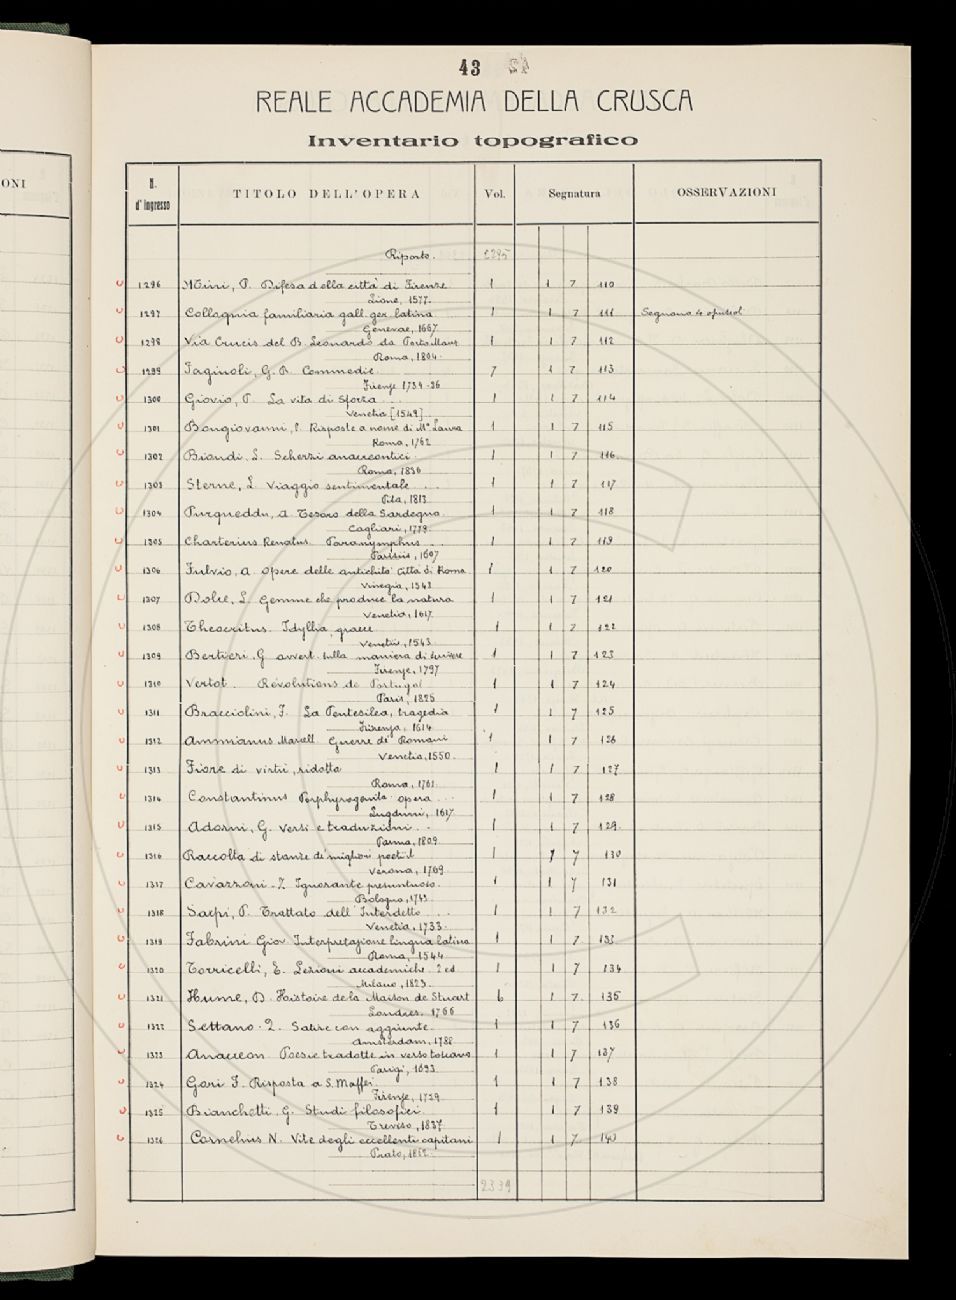 ONI
43
REALE ACCADEMIA DELLA CRUSCA
Inventario topografico
N. d'Ingresso TITOLO DELL'OPERA Vol. Segnatura OSSERVAZIONI
Riporto. 2295
1296 Mini, P. Difesa della città di Firenze 1 1 7 110
Lione, 1577.
1297 Colloquia familiaria gall. ger. latina 1 1 7 111 Seguono 4 opuscol
Genevae, 1667.
1298 Via Crucis del B. Leonardo da Porto Maur. 1 1 7 112
Roma, 1804.
1299 Fagiuoli, G. B. Commedie. 7 1 7 113
Firenze 1734-36
1300 Giovio, P. La vita di Sforza 1 1 7 114
Venetia [1549]
1301 Bongiovanni, Risposte a nome di Mª Laura 1 1 7 115
Roma, 1762
1302 Biondi, L. Scherzi anacreontici 1 1 7 116.
Roma, 1836
1303 Sterne, L. Viaggio sentimentale 1 1 7 117
Pisa, 1813
1304 Purqueddu, A. Tesoro della Sardegna 1 1 7 118
Cagliari, 1779.
1305 Charterius Renatus. Paranymphus 1 1 7 119
Parisiis, 1607
1306 Fulvio, A. Opere delle antichità Città di Roma 1 1 7 120
Vinegia, 1543
1307 Dolce, L. Gemme che produce la natura 1 1 7 121
Venetia, 1617.
1308 Theocritus. Idyllia, graece 1 1 7 122
Venetiis, 1543.
1309 Bertieri. G. avvert. sulla maniera di scrivere 1 1 7 123
Firenze, 1797
1310 Vertot. Révolutions de Portugal 1 1 7 124
Paris, 1825
1311 Bracciolini, F. La Pentesilea, tragedia 1 1 7 125
Firenze, 1614
1312 Ammianus Marcell. Guerre de' Romani 1 1 7 126
Venetia, 1550.
1313 Fiore di virtù, ridotto 1 1 7 127
Roma, 1761.
1314 Constantinus Porphyrogenita opera 1 1 7 128
Lugduni, 1617.
1315 Adorni, G. Versi e traduzioni 1 1 7 129.
Parma, 1809.
1316 Raccolta di stanze de' migliori poeti it 1 1 7 130
Verona, 1769.
1317 Cavazzoni-Z. Ignorante presuntuoso. 1 1 7 131
Bologna, 1743.
1318 Sarpi, P. Trattato dell'Interdetto 1 1 7 132
Venetia, 1733.
1319 Fabrini Giov. Interpretazione lingua latina 1 1 7 133
Roma, 1544
1320 Torricelli, E. Lezioni accademiche. 2 ed. 1 1 7 134
Milano, 1823.
1321 Hume, D. Histoire de la Maison de Stuart 6 1 7 135
Londres. 1766
1322 Settano. Q. Satire con aggiunte. 1 1 7 136
Amsterdam, 1788
1323 Anacreon Poesie tradotte in verso toscano 1 1 7 137
Parigi, 1693.
1324 Gori F. Risposta a S. Maffei 1 1 7 138
Firenze, 1739.
1325 Bianchetti, G. Studi filosofici 1 1 7 139
Treviso, 1837.
1326 Cornelius N. Vite degli eccellenti capitani 1 1 7 140
Prato, 1852.
2339